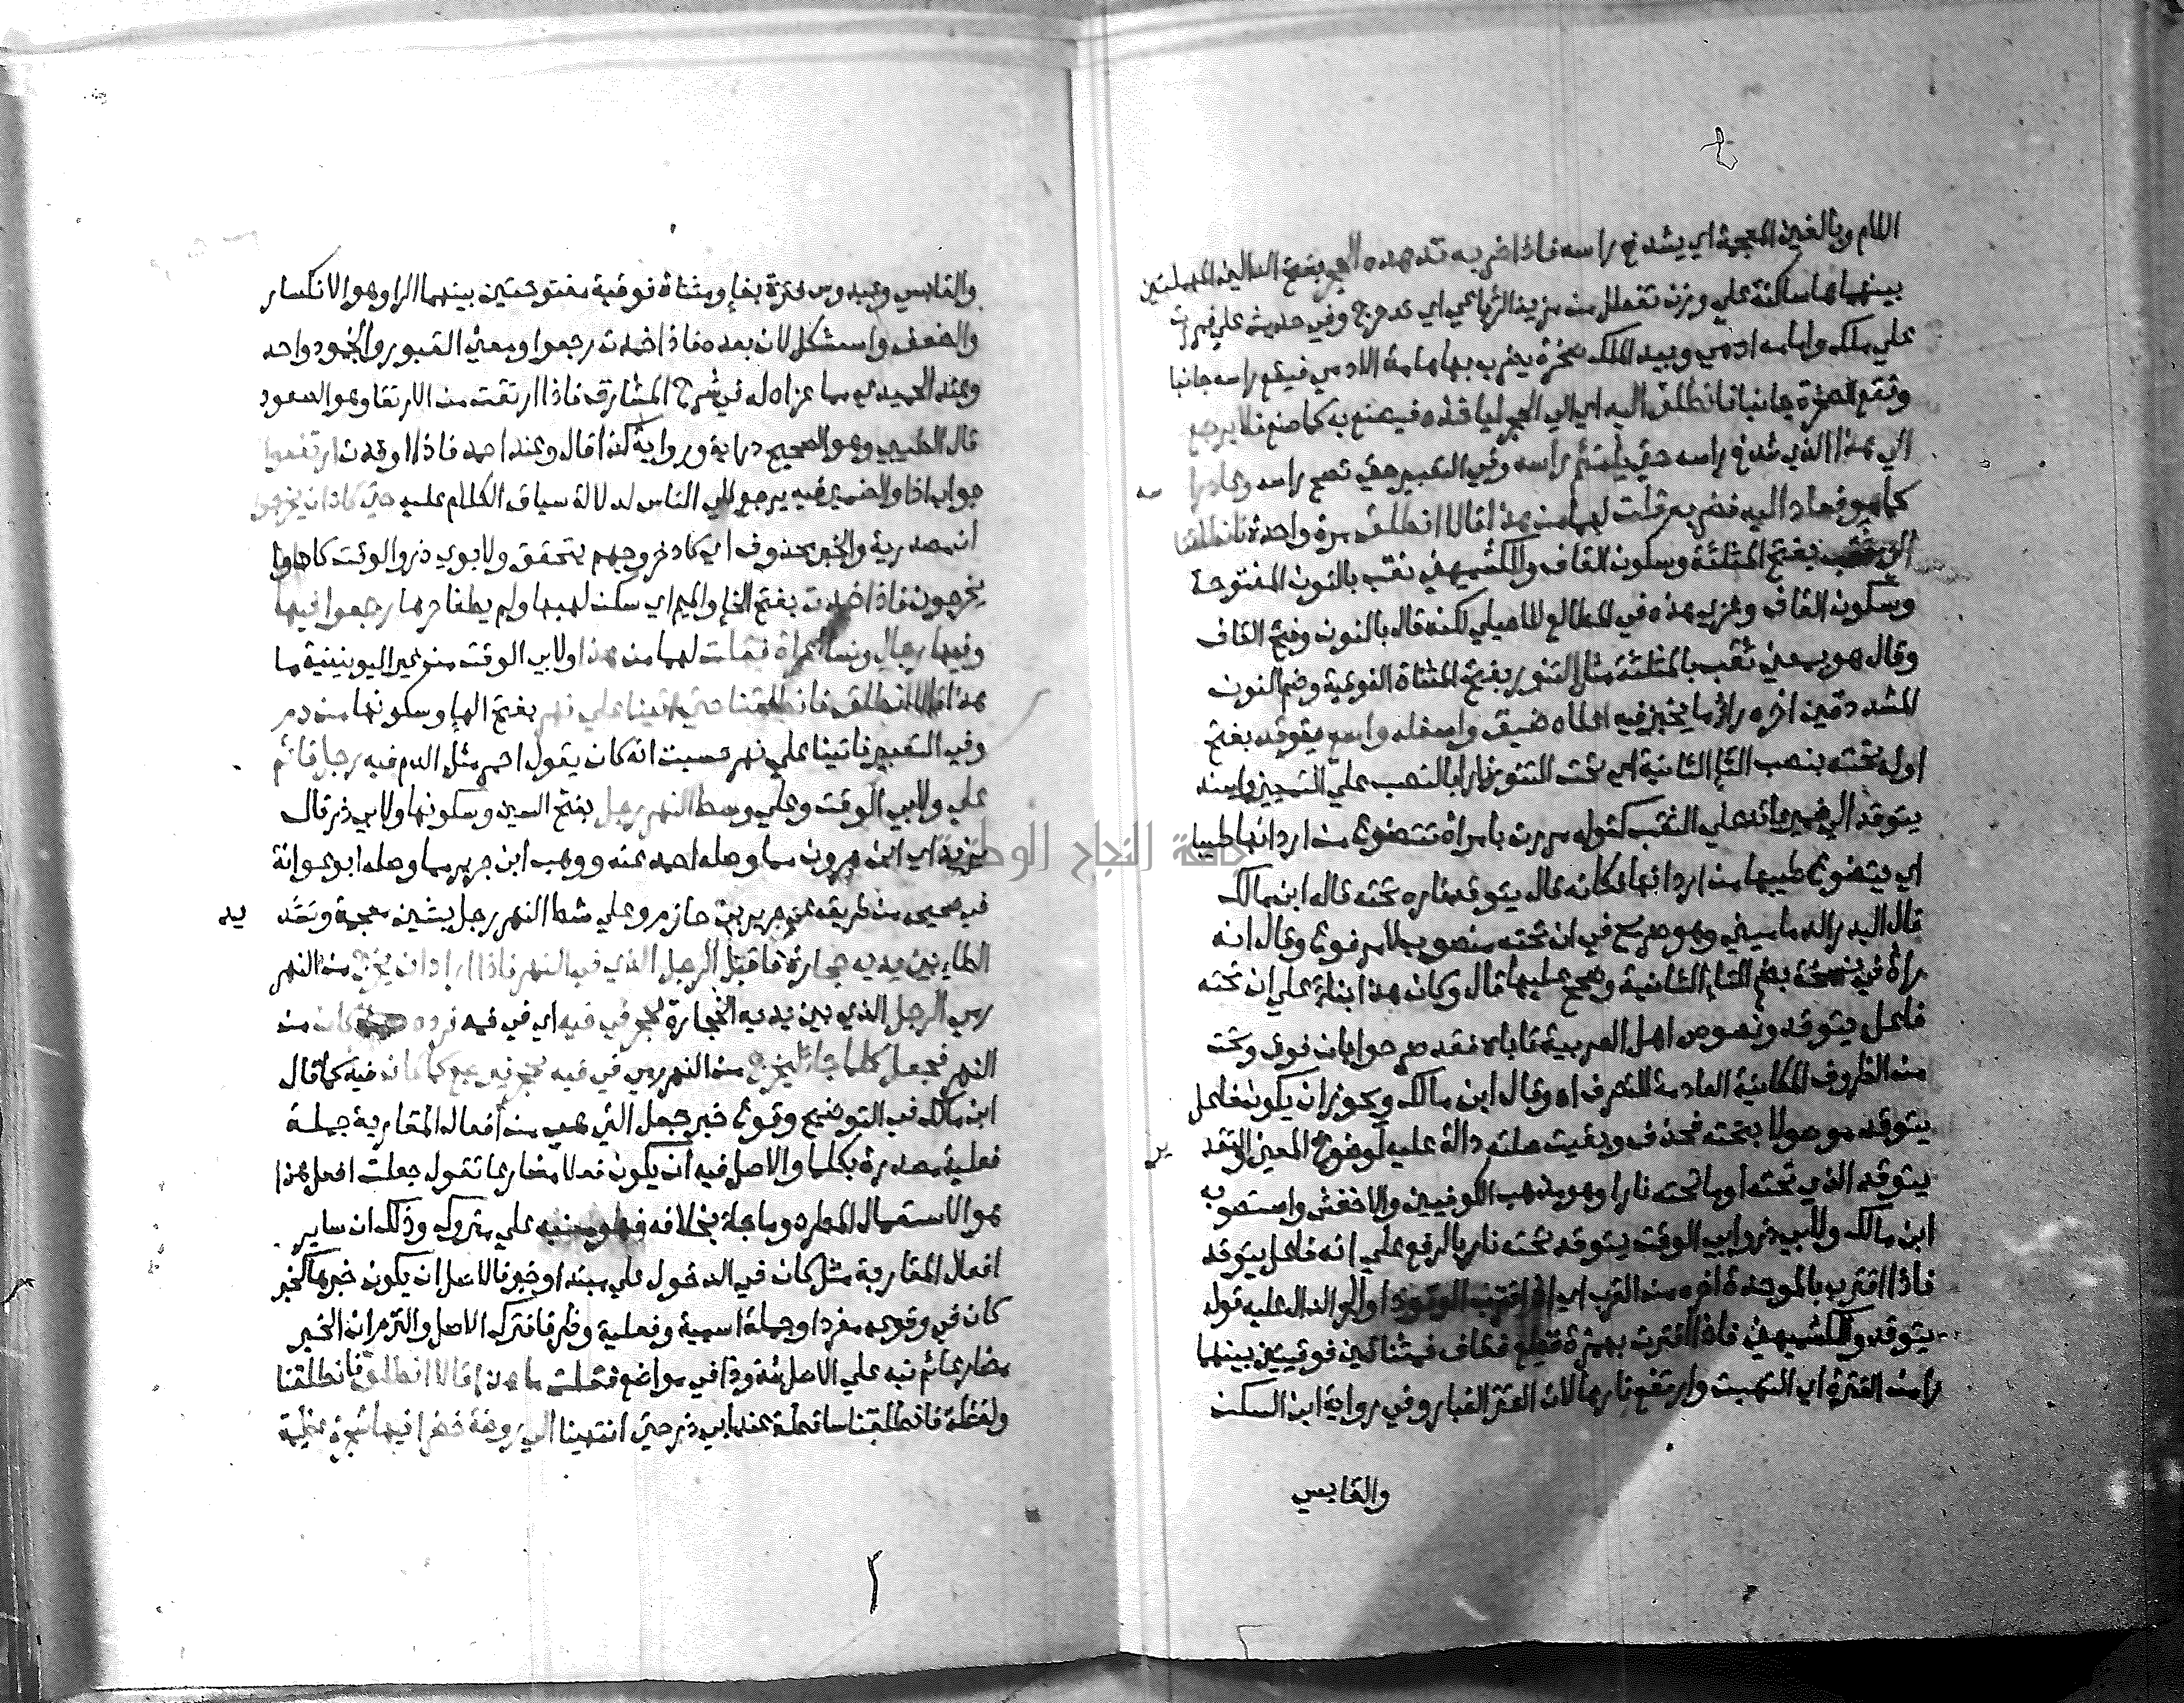 اللام وبالغين المعجمة اي يشدخ راسه فاذا ضربه تدهده الحجر بفتح الدالين المهملتين
بينهما ها ساكنة علي وزن تفعلل من مزيد الرباعي اي تدحرج وفي حديث علي فمررت
علي ملك وامامه ادمي وبيد الملك صخرة يضرب بها هامة الادمي فيقع راسه جانبا
وتقع الصخرة جانبا فانطلق اليه اي الي الحجر لياخذه فيصنع به كما صنع فلا يرجع
الي هذا الذي شدخ راسه حتي يلتئم راسه وفي التعبير حتي تصح راسه وعاد راسه
كما هو فعاد اليه فضربه قلت لهما من هذا قالا انطلق مرة واحدة فانطلقنا
الي ثقب بفتح المثلثة وسكون القاف وللكشميهني نقب بالنون المفتوحة
وسكون القاف وعزي هذه في المطالع للاصيلي لكنه قال بالنون وفتح القاف
وقال هو بمعني ثقب بالمثلثة مثل التنور بفتح المثناة الفوقية وضم النون
المشددة من اخره راء ما يخبز فيه اعلاه ضيق واسفله واسع يتوقد بفتح
اوله تحته بنصب التاء الثانية اي تحت التنور نارا بالنصب علي التمييز واسند
يتوقد الي ضمير عائد علي الثقب كقوله مررت بامراة تتضوع من اردانها طيبا
اي يتضوع طيبها من اردانها فكانه قال يتوقد ناره تحته قاله ابن مالك
قال البدر الدماميني وهو صريح في ان تحته منصوب لا مرفوع وقال انه
راه في نسخة بضم التاء الثانية وصحح عليها قال وكان هذا بناء علي ان تحته
فاعل يتوقد ونصوص اهل العربية تاباه فقد صرحوا بان فوق وتحت
من الظروف المكانية العادمة التصرف اه وقال ابن مالك ويجوز ان يكون فاعل
يتوقد موصولا بتحته فحذف وبقيت صلته دالة عليه لوضوح المعني والتقدير
يتوقد الذي تحته او ما تحته نارا وهو مذهب الكوفيين والاخفش واستصوبه
ابن مالك ولابي ذر وابي الوقت يتوقد تحته نار بالرفع علي انه فاعل يتوقد
فاذا اقترب بالموحدة اخره من القرب اي اذا اقترب الوقود او الحر الدال عليه قوله
يتوقد وللكشميهني فاذا اقترت بهمزة قطع فقاف فمثناتين فوقيتين بينهما
را من القترة اي التهبت وارتفع نارها لان القتر الغبار وفي رواية ابن السكن
والقابسي
والقابسي وعبدوس فترة بفاء ومثناة فوقية مفتوحتين بينهما الرا وهو الانكسار
والضعف واستشكل لان بعده فاذا خمدت رجعوا ومعني الفتور والخمود واحد
وعند الحميدي مما عزاه له في شرح المشارق فاذا ارتقت من الارتقا وهو الصعود
قال الطيبي وهو الصحيح دراية ورواية كذا قال وعند احمد فاذا اوقدت ارتفعوا
جواب اذا والضمير فيه يرجع الي الناس لدلالة سياق الكلام عليه حتي كاد ان يخرجوا
ان مصدرية والخبر محذوف اي كاد خروجهم يتحقق ولابوي ذر والوقت كادوا
يخرجون فاذا خمدت بفتح الخاء والميم اي سكن لهبها ولم يطفا حرها رجعوا فيها
وفيها رجال ونساء عراة فقلت لهما من هذا ولابي الوقت من غير اليونينية ما
هذا قالا انطلق فانطلقنا حتي اتينا علي نهر بفتح الهاء وسكونها من دم
وفي التعبير فاتينا علي نهر حسبت انه كان يقول احمر مثل الدم فيه رجل قائم
علي ولابي الوقت وعلي وسط النهر رجل بفتح السين وسكونها ولابي ذر قال
يزيد اي ابن هرون مما وصله احمد عنه ووهب ابن جرير مما وصله ابو عوانة
في صحيحه من طريقه عن جرير بن حازم وعلي شط النهر رجل بشين معجمة وتشديد
الطاء بين يديه حجارة فاقبل الرجل الذي في النهر فاذا اراد ان يخرج من النهر
رمي الرجل الذي بين يديه الحجارة بحجر في فيه اي في فمه فرده حيث كان من
النهر فجعل كلما جاء ليخرج من النهر رمي في فيه بحجر فيرجع كما كان فيه كما قال
ابن مالك في التوضيح وقوع خبر جعل التي هي من افعال المقاربة جملة
فعلية مصدرة بكلما والاصل فيه ان يكون فعلا مضارعا تقول جعلت افعل هذا
هو الاستعمال المطرد وما جاء بخلافه فهو منبه علي متروك وذلك ان ساير
افعال المقاربة مثل كان في الدخول علي مبتدا وخبر فالاصل ان يكون خبرها كخبر
كان في وقوعه مفردا وجملة اسمية وفعلية وظرفا فترك الاصل والتزم ان الخبر
مضارعا ثم نبه علي الاصل شذوذا في مواضع فقلت ما هذا قالا انطلق فانطلقنا
ولفظة فانطلقنا ساقطة عند ابي ذر حتي انتهينا الي روضة خضرا فيها شجرة عظيمة